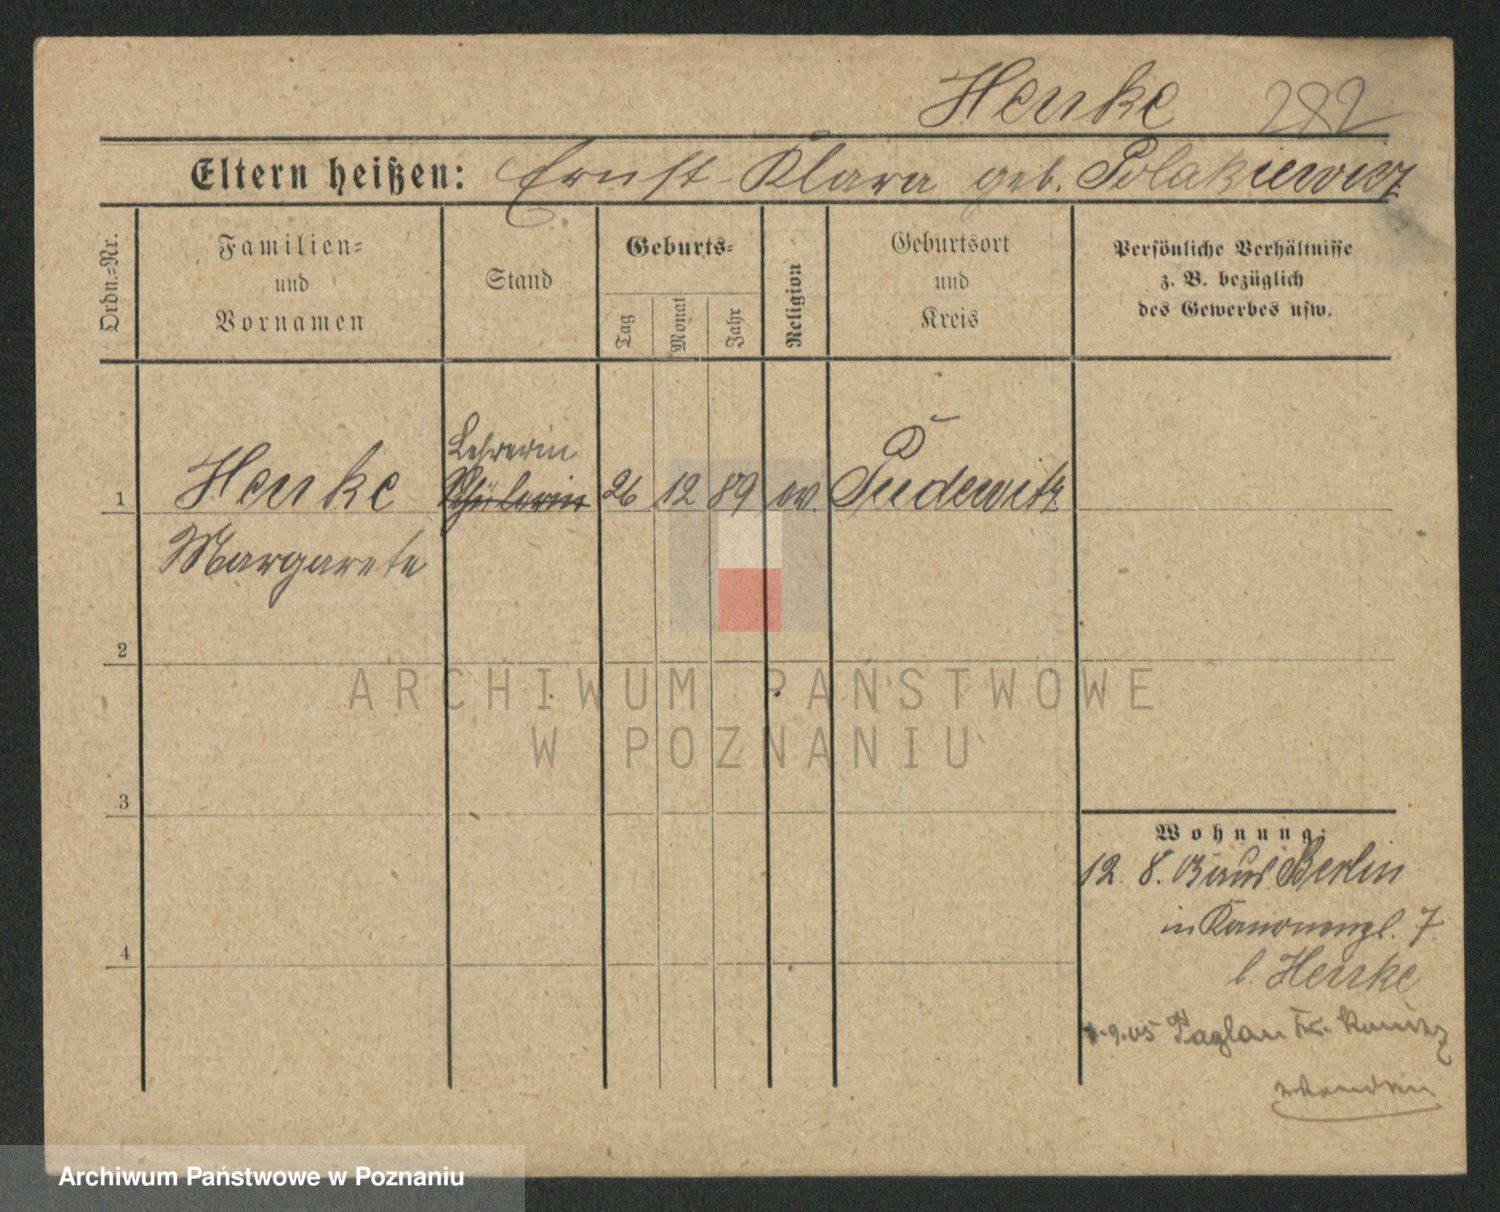 Henke 282
Eltern heißen: Ernst - Klara geb. Polakiewicz
Ordn.=Nr.
Familien=
und
Vornamen
Stand
Geburts=
Tag
Monat
Jahr
Religion
Geburtsort
und
Kreis
Persönliche Verhältnisse
z. B. bezüglich
des Gewerbes usw.
Lehrerin
1 Henke Schülerin 26 12 89 ev. Pudewitz
Margarete
2
ARCHIWUM PAŃSTWOWE
W POZNANIU
3
Wohnung:
12. 8. 03 aus Berlin
in Kanonenpl. 7
b. Henke
4
9.05 Paglau Kr. Konitz
Archiwum Państwowe w Poznaniu